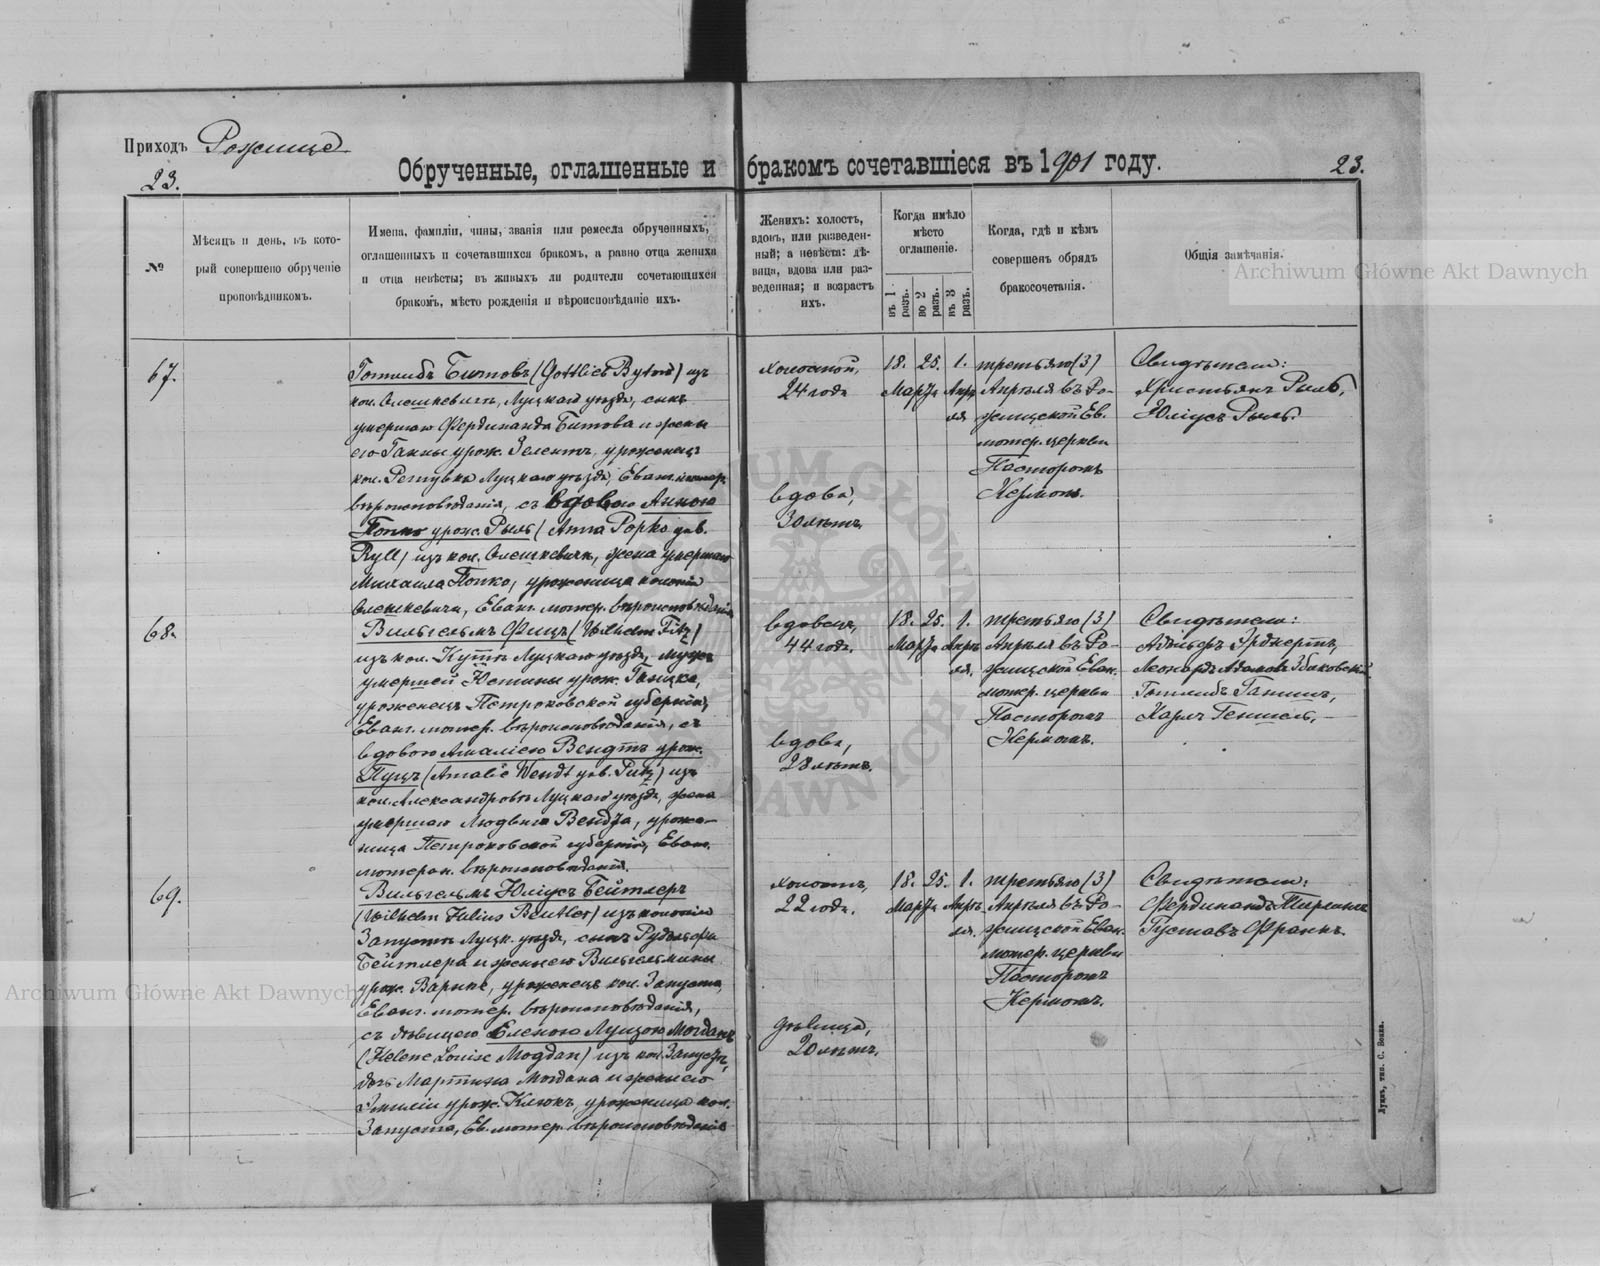 Приходъ Рожище
23.
Обрученные, оглашенные и бракомъ сочетавшіеся въ 1901 году.
23.
№
Мѣсяцъ и день, въ кото-
рый совершено обрученіе
проповѣдникомъ.
Имена, фамиліи, чины, званія или ремесла обрученныхъ,
оглашенныхъ и сочетавшихся бракомъ, а равно отца жениха
и отца невѣсты; въ живыхъ ли родители сочетающихся
бракомъ, мѣсто рожденія и вѣроисповѣданіе ихъ.
Женихъ: холостъ,
вдовъ, или разведен-
ный; а невѣста: дѣ-
вица, вдова или раз-
веденная; и возрастъ
ихъ.
Когда имѣло
мѣсто
оглашеніе.
въ 1 разъ.
во 2 разъ.
въ 3 разъ.
Когда, гдѣ и кѣмъ
совершенъ обрядъ
бракосочетанія.
Общія замѣчанія.
67.
Готлибъ Битовъ (Gottlieb Bytow) изъ
кол. Олешкевичъ, Луцкаго уѣзда, сынъ
умершаго Фердинанда Битова и жены
его Ганны урож. Зелентъ, уроженецъ
кол. Луцкаго уѣзда, Еванг. лютер.
вѣроисповѣданія, съ вдовою Анною
Попко урож. Рыль (Anna Popko geb.
Ryll) изъ кол. Олешкевичъ, жена умершаго
Михаила Попко, уроженица колоніи
Олешкевича, Еванг. лютер. вѣроисповѣданія
холостой,
24 года
вдова,
30 лѣтъ.
18. 25. 1.
Марта Апрѣ
ля
третьяго (3)
Апрѣля въ Ро-
жищской Ев.
лютер. церкви
Пасторомъ
Керномъ.
Свидѣтели:
Христьянъ Рыль,
Юліусъ Рыль.
68.
Вильгельмъ Фицъ (Wilhelm Fitz)
изъ кол. Луцкаго уѣзда, мужъ
умершей Юстины урож.
уроженецъ Петроковской губерніи,
Еванг. лютер. вѣроисповѣданія, съ
вдовою Амаліею Вендтъ урож.
Пуцъ (Amalie Wendt geb. Putz) изъ
кол. Александровъ Луцкаго уѣзда, жена
умершаго Людвига Вендта, уроже-
ница Петроковской губерніи, Еванг.
лютеран. вѣроисповѣданія.
вдовецъ,
44 года.
вдова,
28 лѣтъ.
18. 25. 1.
Марта Апрѣ
ля.
третьяго (3)
Апрѣля въ Ро-
жищской Еван.
лютер. церкви
Пасторомъ
Керномъ.
Свидѣтели:
Адольфъ
Леонардъ
Готлибъ
Карлъ Геншель, —
69.
Вильгельмъ Юліусъ Бейтлеръ
(Wilhelm Julius Beutler) изъ колоніи
Запустъ Луцк. уѣзда, сынъ Рудольфа
Бейтлера и жены его Вильгельмины
урож. Варнке, уроженецъ кол. Запуста,
Еванг. лютер. вѣроисповѣданія,
съ дѣвицею Еленою Луизою Могданъ
(Helene Louise Mogdan) изъ кол. Запустъ,
дочь Мартина Могдана и жены его
Эмиліи урож. Клюкъ, уроженица кол.
Запуста, Ев. лютер. вѣроисповѣданія
холостъ,
22 года.
дѣвица,
20 лѣтъ.
18. 25. 1.
Марта Апрѣ
ля.
третьяго (3)
Апрѣля въ Ро-
жищской Еван.
лютер. церкви
Пасторомъ
Керномъ.
Свидѣтели:
Фердинандъ
Густавъ Франкъ.
Archiwum Główne Akt Dawnych
Archiwum Główne Akt Dawnych